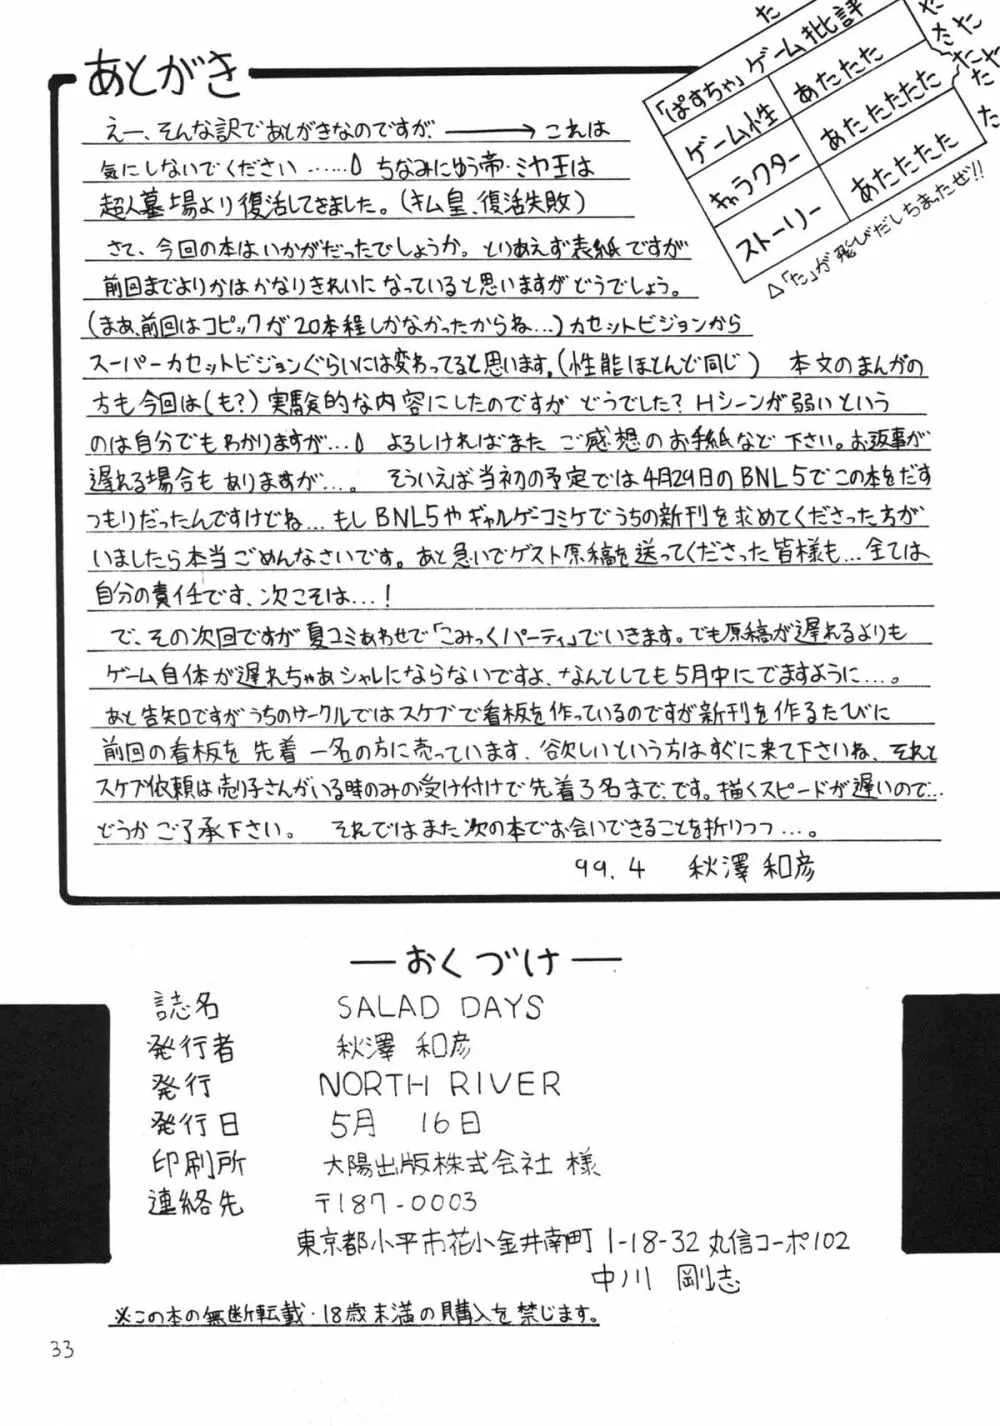 あとがき
「ぱすちゃ」ゲーム批評
ゲーム性 あたたた
キャラクター あたたたたた
ストーリー あたたたた
た
た
た
た
た
た
た
た
た
△「た」が飛びだしちまったぜ!!
えー、そんな訳であとがきなのですが、→これは
気にしないでください……。ちなみにゆう帝・ミヤ王は
超人墓場より復活してきました。(キム皇、復活失敗)
さて、今回の本はいかがだったでしょうか。とりあえず表紙ですが
前回までよりかはかなりきれいになっていると思いますがどうでしょう。
(まあ、前回はコピックが20本程しかなかったからね…)カセットビジョンから
スーパーカセットビジョンぐらいには変わってると思います。(性能ほとんど同じ) 本文のまんがの
方も今回は(も?)実験的な内容にしたのですがどうでした?Hシーンが弱いという
のは自分でもわかりますが…。よろしければまたご感想のお手紙など下さい。お返事が
遅れる場合もありますが…。 そういえば当初の予定では4月29日のBNL5でこの本をだす
つもりだったんですけどね…もしBNL5やギャルゲーコミケでうちの新刊を求めてくださった方が
いましたら本当ごめんなさいです。あと急いでゲスト原稿を送ってくださった皆様も…全ては
自分の責任です、次こそは…!
で、その次回ですが夏コミあわせで「こみっくパーティ」でいきます。でも原稿が遅れるよりも
ゲーム自体が遅れちゃあシャレにならないですよ、なんとしても5月中にでますように…。
あと告知ですがうちのサークルではスケブで看板を作っているのですが新刊を作るたびに
前回の看板を先着一名の方に売っています、欲しいという方はすぐに来て下さいね、それと
スケブ依頼は売り子さんがいる時のみの受け付けで先着3名まで、です。描くスピードが遅いので…
どうかご了承下さい。 それではまた次の本でお会いできることを祈りつつ…。
99.4 秋澤 和彦
―おくづけ―
誌名 SALAD DAYS
発行者 秋澤 和彦
発行 NORTH RIVER
発行日 5月 16日
印刷所 大陽出版株式会社 様
連絡先 〒187-0003
東京都小平市花小金井南町1-18-32丸信コーポ102
中川 剛志
※この本の無断転載・18歳未満の購入を禁じます。
33